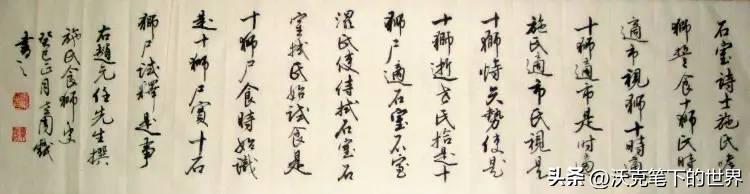 石室詩士施氏嗜
獅誓食十獅氏時
適市視獅十時適
十獅適市是时適
施氏適市氏視是
十獅恃矢勢使是
十獅逝世氏拾是十
獅尸適石室石室
溼氏使侍拭石室石
室拭氏始試食是
十獅尸食時始識
是十獅尸實十石
獅尸試釋是事
右趙元任先生撰
施氏食獅史
癸巳正月
書之
头条 @沃克笔下的世界